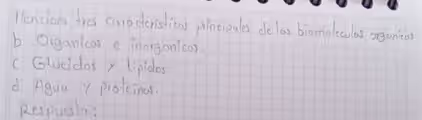 Menciona tres características principales de las biomoléculas orgánicas
b Organicas e inorganicos.
c Glucidos y Lipidos
d. Agua y proteinas.
Respuesta: